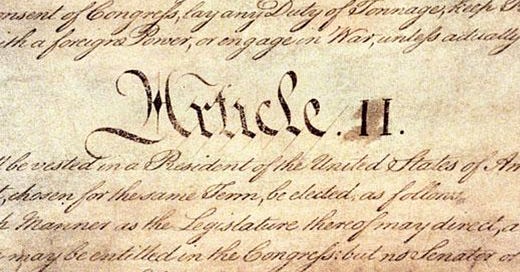 onsent of Congress, lay any Duty of Tonnage, keep
ith a foreign Power, or engage in War, unless actually
Article. II.
ll be vested in a President of the United States of Am
t, chosen for the same Term, be elected, as follows
h Manner as the Legislature thereof may direct, a
may be entitled in the Congress: but no Senator or